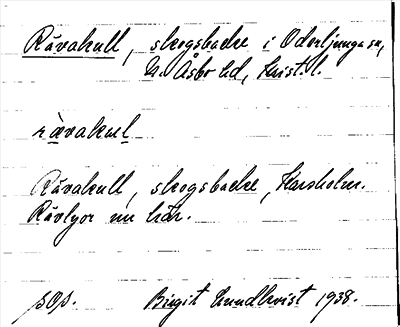 Råvakull, skogsbacke i Oderljunga sn,
N. Åsbo hd, Krist. l.
ràvakul
Råvakull, skogsbacke, Karsholm.
Råvlyor nu här.
pop. Birgit Lundkvist 1938.